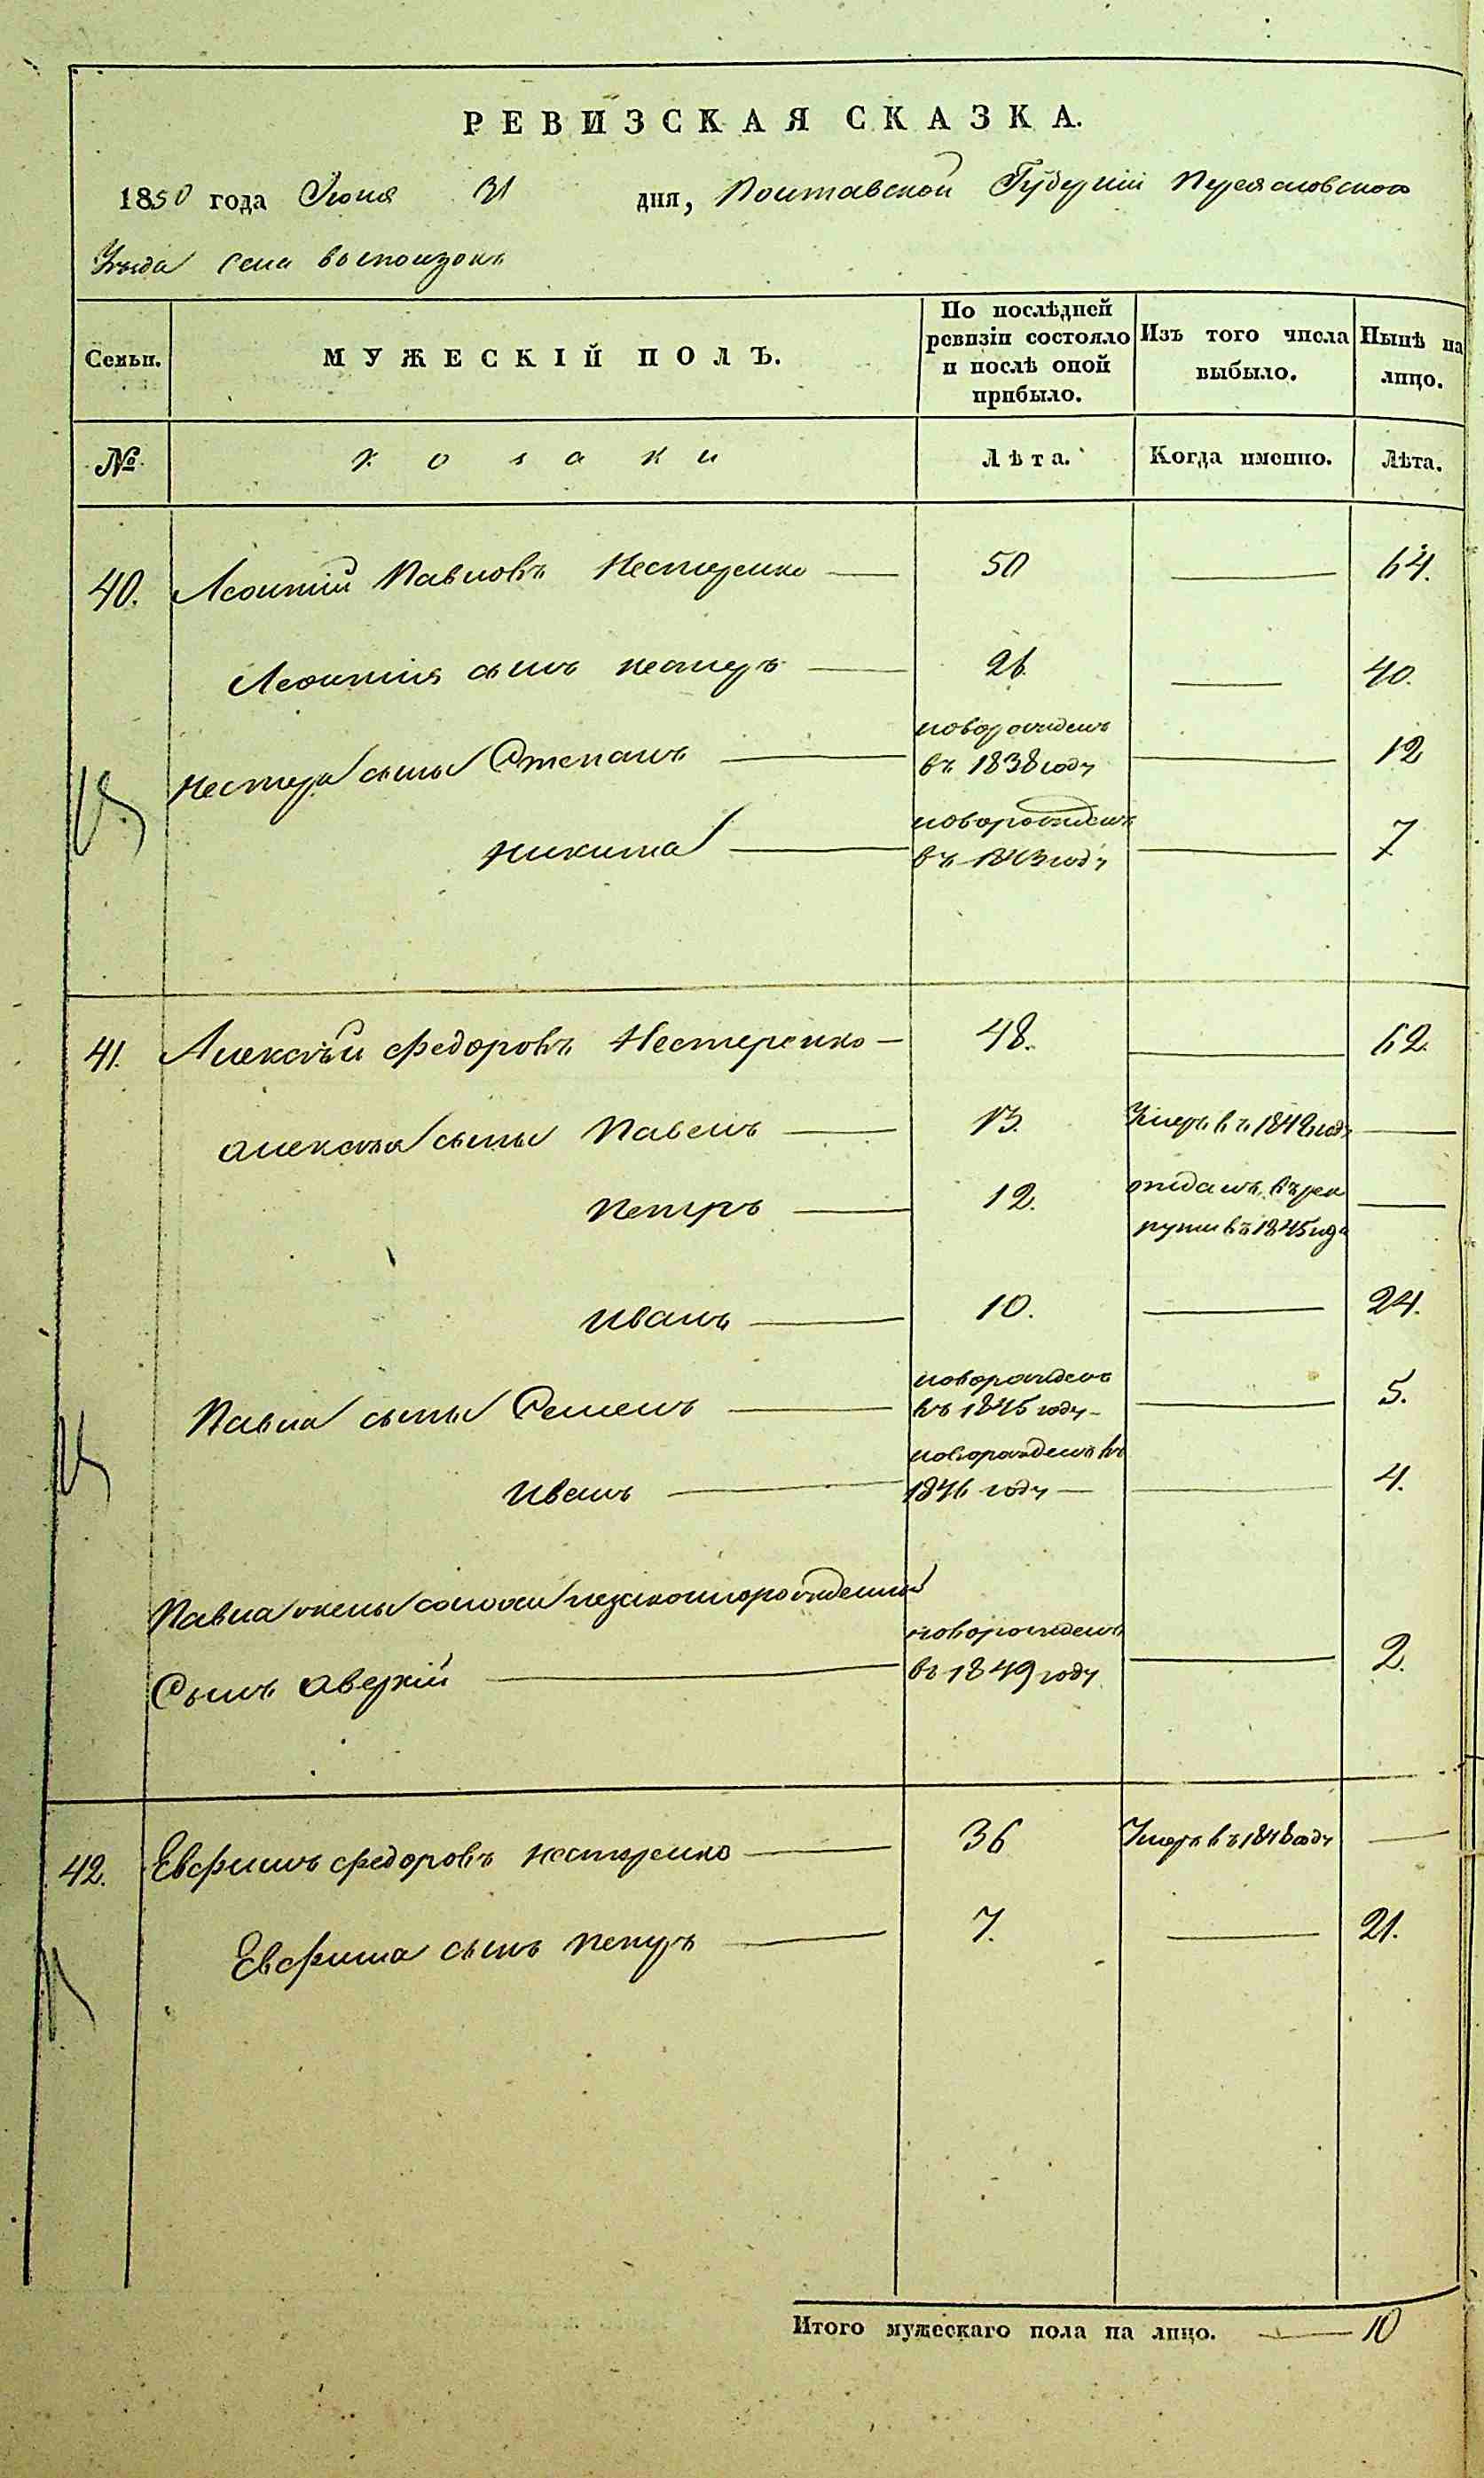 РЕВИЗСКАЯ СКАЗКА.
1850 года Июня 31 дня, Полтавской Губерніи Переясловского
Уѣзда села
Семьи. МУЖЕСКІЙ ПОЛЪ. По послѣдней ревизіи состояло и послѣ оной прибыло. Изъ того числа выбыло. Нынѣ на лицо.
№ козаки Лѣта. Когда именно. Лѣта.
40. Леонтій Павловъ Нестеренко — 50 — 64.
Леонтія сынъ Нестеръ — 26. — 40.
Нестера сыны Степанъ — новорожденъ въ 1838 году — 12
Никита — новорожденъ въ 1843 году — 7
41. Алексѣй Федоровъ Нестеренко — 48. — 62.
Алексѣя сыны Павелъ — 13. Умеръ въ 1848 году —
Петръ — 12. отданъ въ рекруты въ 1845 году —
Иванъ — 10. — 24.
Павла сыны Семенъ — новорожденъ въ 1845 году — 5.
Иванъ — новорожденъ въ 1846 году — 4.
Павла жены незаконнорожденный
Сынъ Аверкій — новорожденъ въ 1849 году — 2.
42. Евфимъ Федоровъ Нестеренко — 36 Умеръ въ 1848 году —
Евфима сынъ Петръ — 7. — 21.
Итого мужескаго пола на лицо. — 10